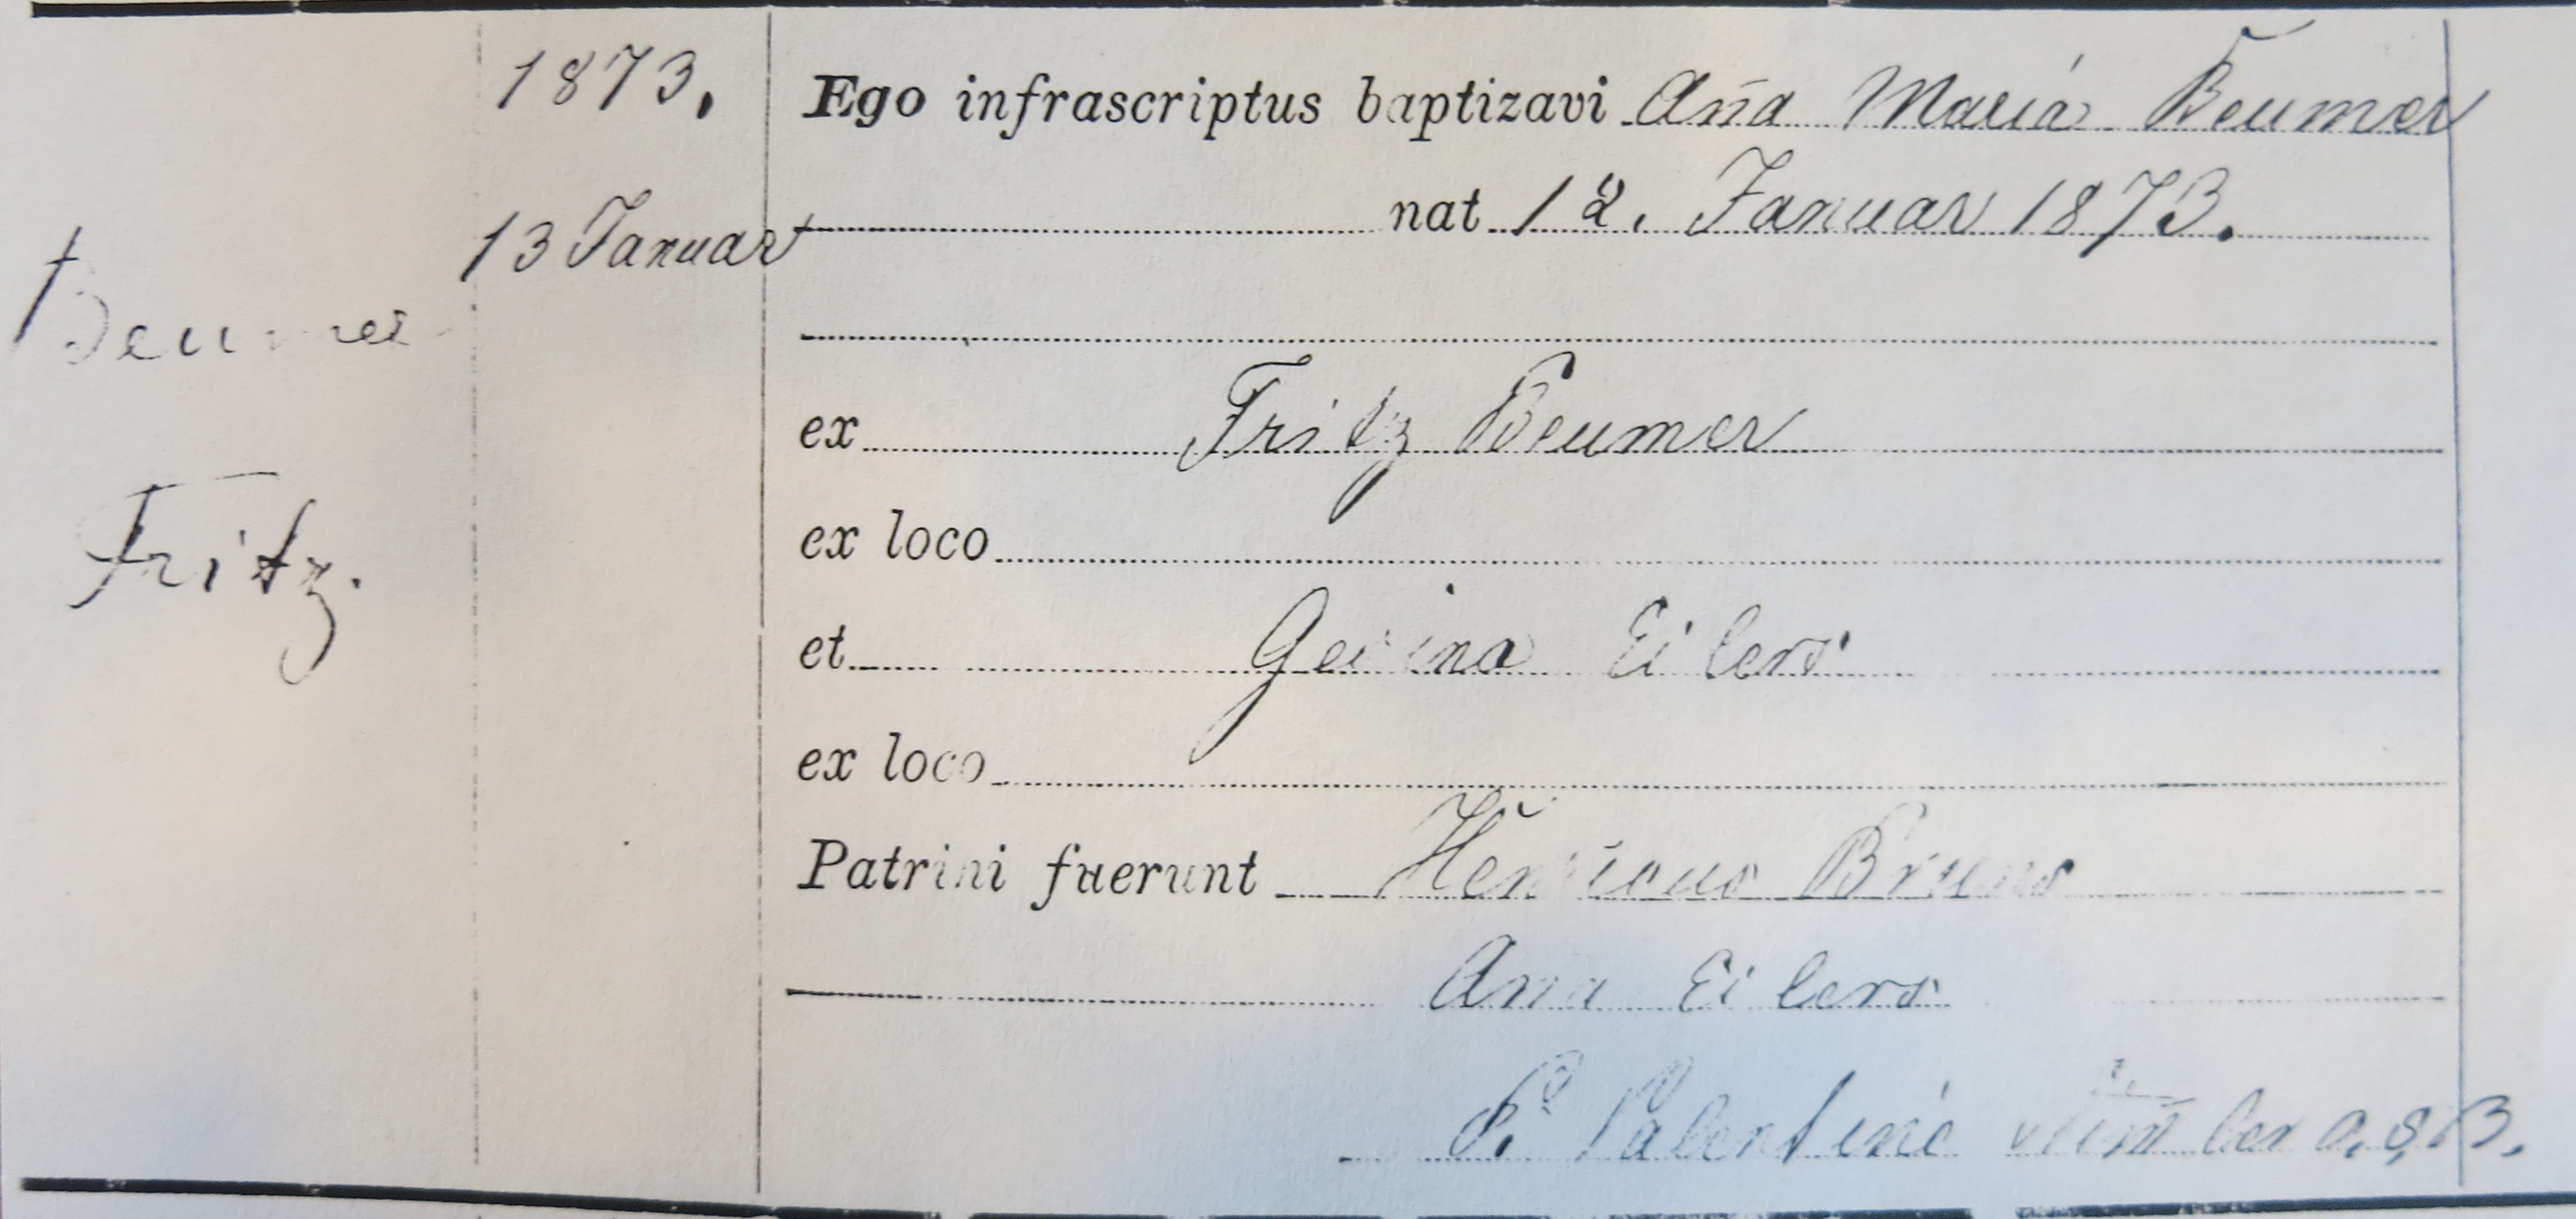 1873.
13 Januar
† Beumer
Fritz.
Ego infrascriptus baptizavi Aña Maria Beumer
nat 12. Januar 1873.
ex Fritz Beumer
ex loco
et Gesina Eilers
ex loco
Patrini fuerunt Henricus Bruns
Ana Eilers
P. o.s.B.